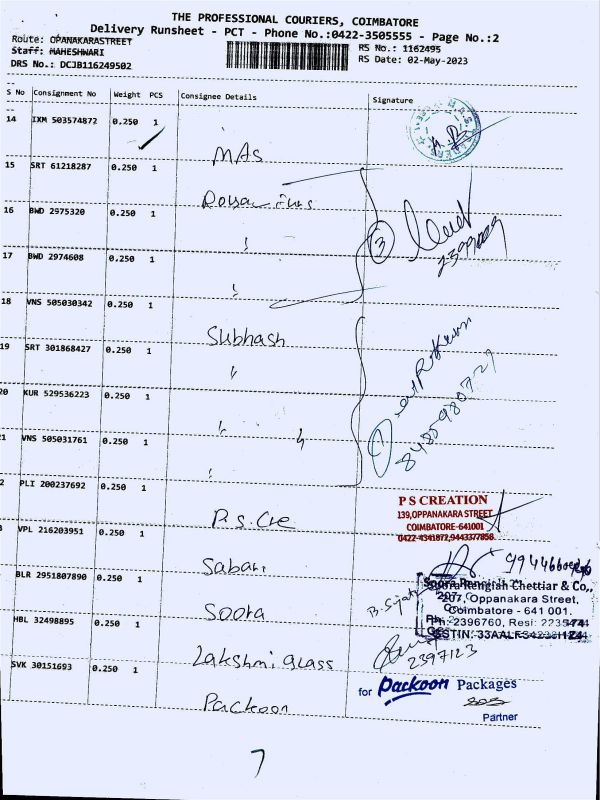 THE PROFESSIONAL COURIERS, COIMBATORE
Delivery Runsheet - PCT - Phone No.:0422-3505555 - Page No.:2
Route: OPANAKARASTREET
Staff: MAHESHWARI
DRS No.: DCJB116249502
RS No.: 1162495
RS Date: 02-May-2023
S No Consignment No Weight PCS Consignee Details Signature
14 IXM 503574872 0.250 1
MAS
15 SRT 61218287 0.250 1
16 BWD 2975320 0.250 1
3
17 BWD 2974608 0.250 1
18 VNS 505030342 0.250 1
Subhash
19 SRT 301868427 0.250 1
20 KUR 529536223 0.250 1
8485980727
21 VNS 505031761 0.250 1
2 PLI 200237692 0.250 1
P.S. Cre
P S CREATION
139,OPPANAKARA STREET
COIMBATORE-641001
0422-4341872,9443377858
VPL 216203951 0.250 1
Sabari
BLR 2951807890 0.250 1
Soora
Soora Rengiah Chettiar & Co.,
207, Oppanakara Street,
Coimbatore - 641 001.
Ph: 2396760, Resi:
HBL 32498895 0.250 1
Lakshmi Glass
2397123
SVK 30151693 0.250 1
Packoon
for Packoon Packages
Partner
7